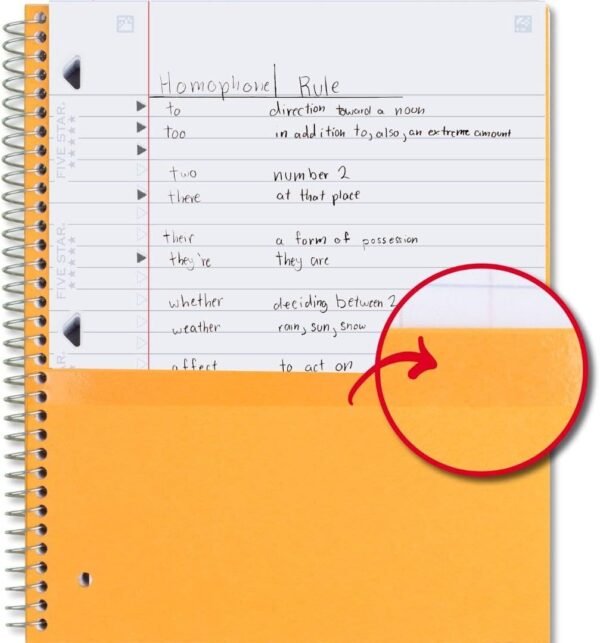 Homophone Rule
to direction toward a noun
too in addition to, also, an extreme amount
two number 2
there at that place
their a form of possession
they're they are
whether deciding between 2
weather rain, sun, snow
affect to act on
FIVE STAR
FIVE STAR
FIVE STAR